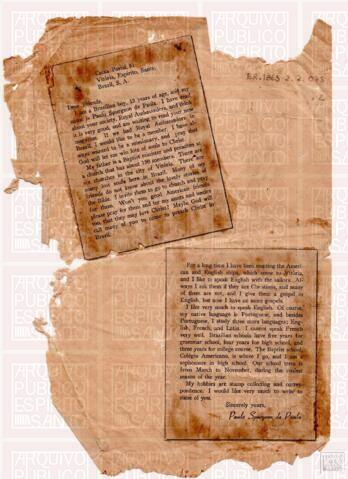 Caixa Postal 81
Vitória, Espirito Santo,
Brazil, S. A.
Dear friends,
I am a Brazilian boy, 15 years of age, and my
name is Paulo Spurgeon de Paula. I have read
about your society, Royal Ambassadors, and think
it is very good, and am writing to read your new
magazine. If we had Royal Ambassadors, in
Brazil, I would like to be a member. I have always
wanted to be a missionary, and pray that
God will let me win lots of souls to Christ.
My father is a Baptist minister and preaches at
a church that has about 190 members. There are
six churches in the city of Vitória. There are
many lost souls here in Brazil. Many of our
friends do not know about the lovely stories of
the Bible. I invite them to go to church and pray
for them. Won't you good American friends
please pray for them and for my aunts and uncles
too, that they may love Christ? Maybe God will
call many of you to come to preach Christ in
Brazil.
BR.1863 2.2.
For a long time I have been meeting the Ameri-
can and English ships, which come to Vitória,
and I like to speak English with the sailors. Al-
ways I ask them if they are Christians, and many
of them are not, and I give them a gospel in
English, but now I have no more gospels.
I like very much to speak English. Of course,
my native language is Portuguese, and besides
Portuguese, I study three more languages: Eng-
lish, French, and Latin. I cannot speak French
very well. Brazilian schools have five years for
grammar school, four years for high school, and
three years for college course. The Baptist school,
Colégio Americano, is where I go, and I am a
sophomore in high school. Our school term is
from March to November, during the coolest
season of the year.
My hobbies are stamp collecting and corres-
pondence. I would like very much to write to
some of you.
Sincerely yours,
Paulo Spurgeon de Paula